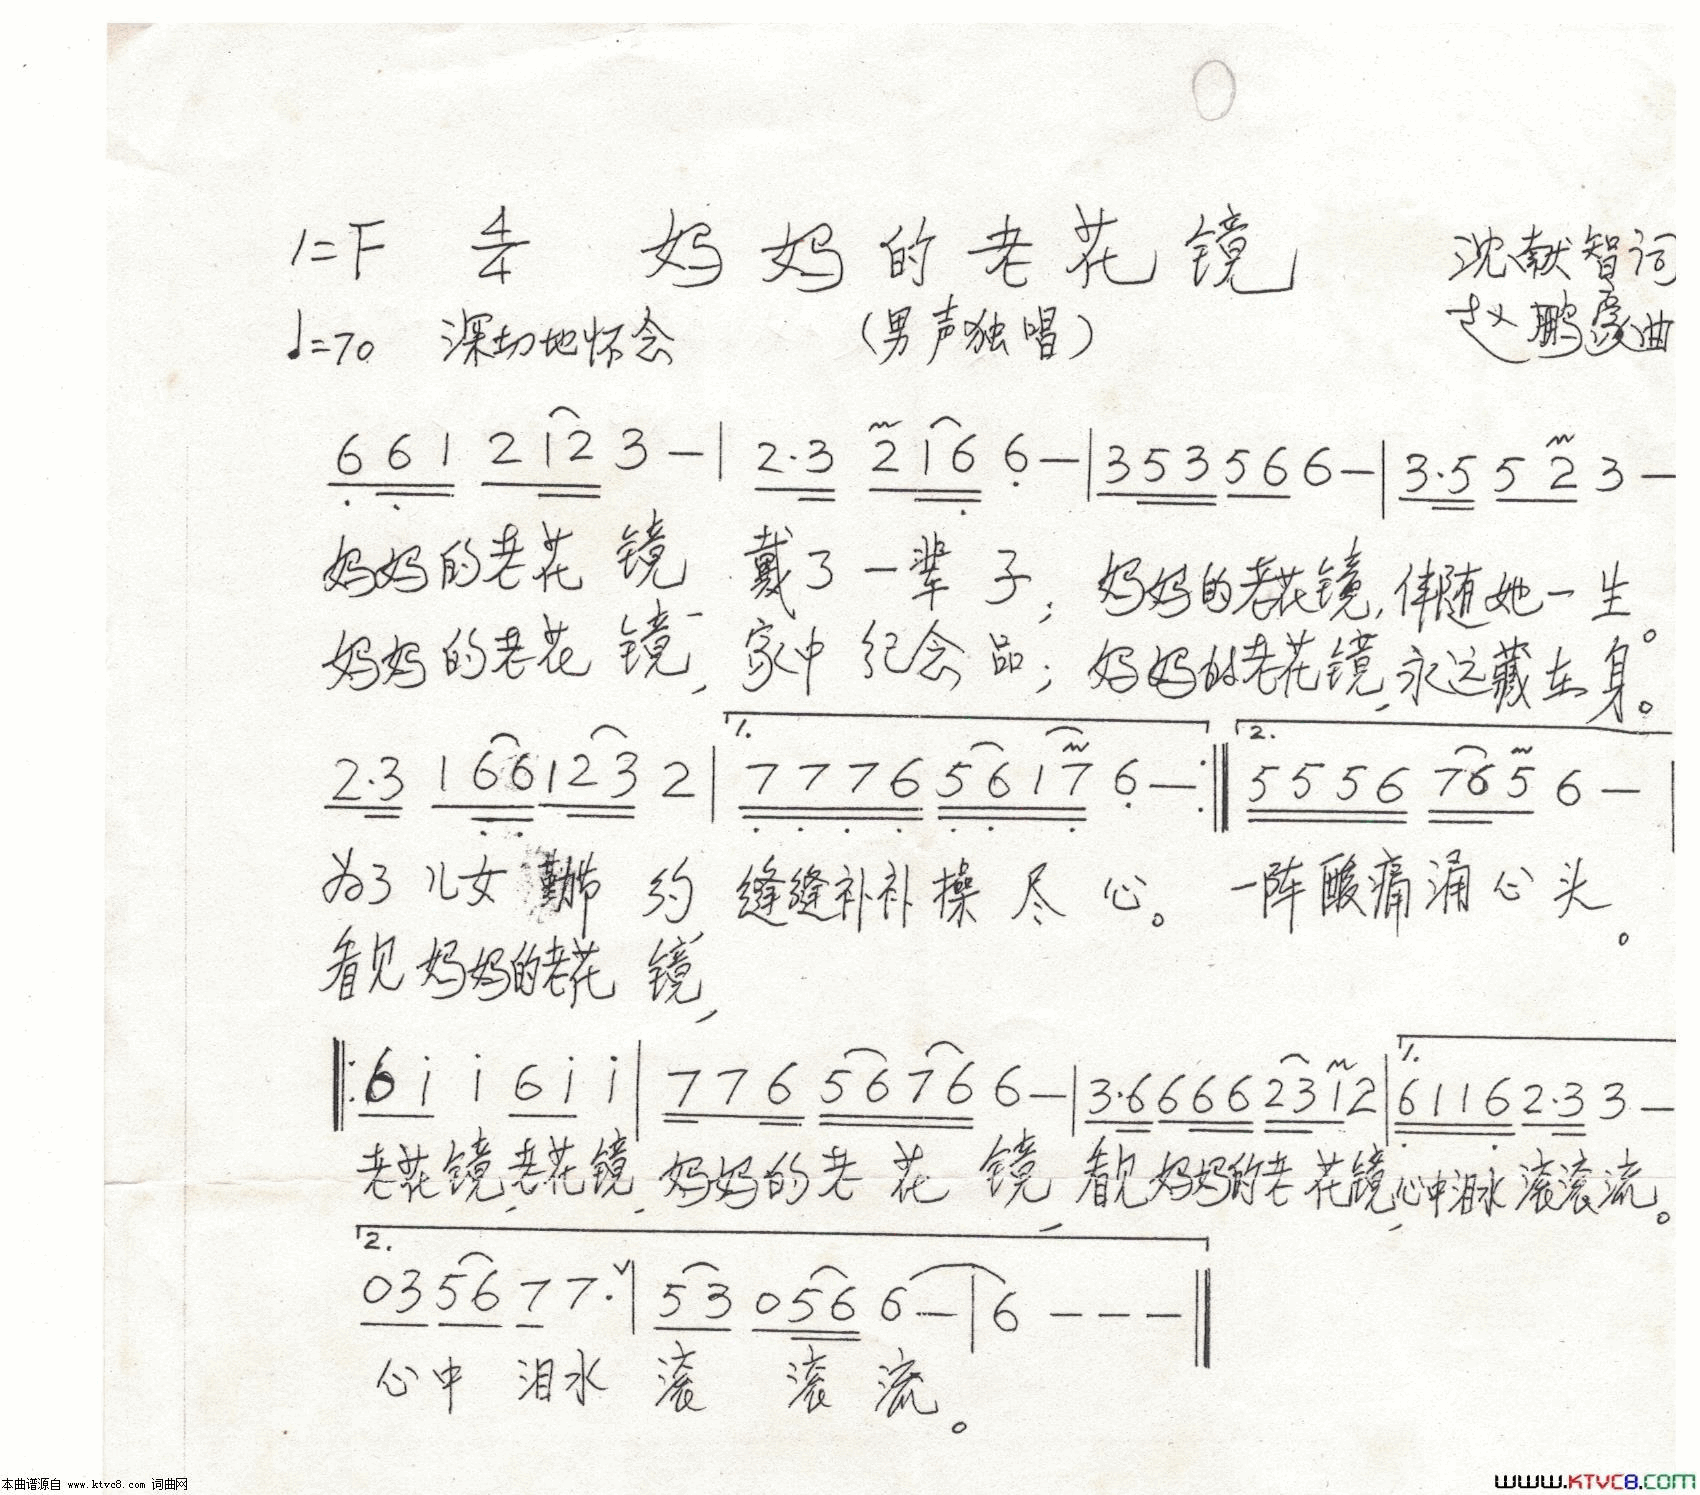 1=F 4/4 妈妈的老花镜 沈献智词
♩=70 深切地怀念 (男声独唱) 赵鹏豪曲
6 6 1 2 1 2 3 — | 2·3 2 1 6 6 — | 3 5 3 5 6 6 — | 3·5 5 2 3 —
妈妈的老花镜 戴了一辈子; 妈妈的老花镜, 伴随她一生。
妈妈的老花镜, 家中纪念品; 妈妈的老花镜, 永远藏在身。
1.
2.
2·3 1 6 6 1 2 3 2 | 7 7 7 6 5 6 1 7 6 — :‖ 5 5 5 6 7 6 5 6 — |
为了儿女勤节约, 缝缝补补操尽心。 一阵酸痛涌心头。
看见妈妈的老花镜,
1.
‖: 6 i i 6 i i | 7 7 6 5 6 7 6 6 — | 3·6 6 6 6 2 3 1 2 | 6 1 1 6 2·3 3 —
老花镜, 老花镜, 妈妈的老花镜, 看见妈妈的老花镜, 心中泪水滚滚流。
2.
0 3 5 6 7 7· ∨ | 5 3 0 5 6 6 — | 6 — — — ‖
心中泪水滚滚流。
本曲谱源自 www.ktvc8.com 词曲网
www.KTVC8.com